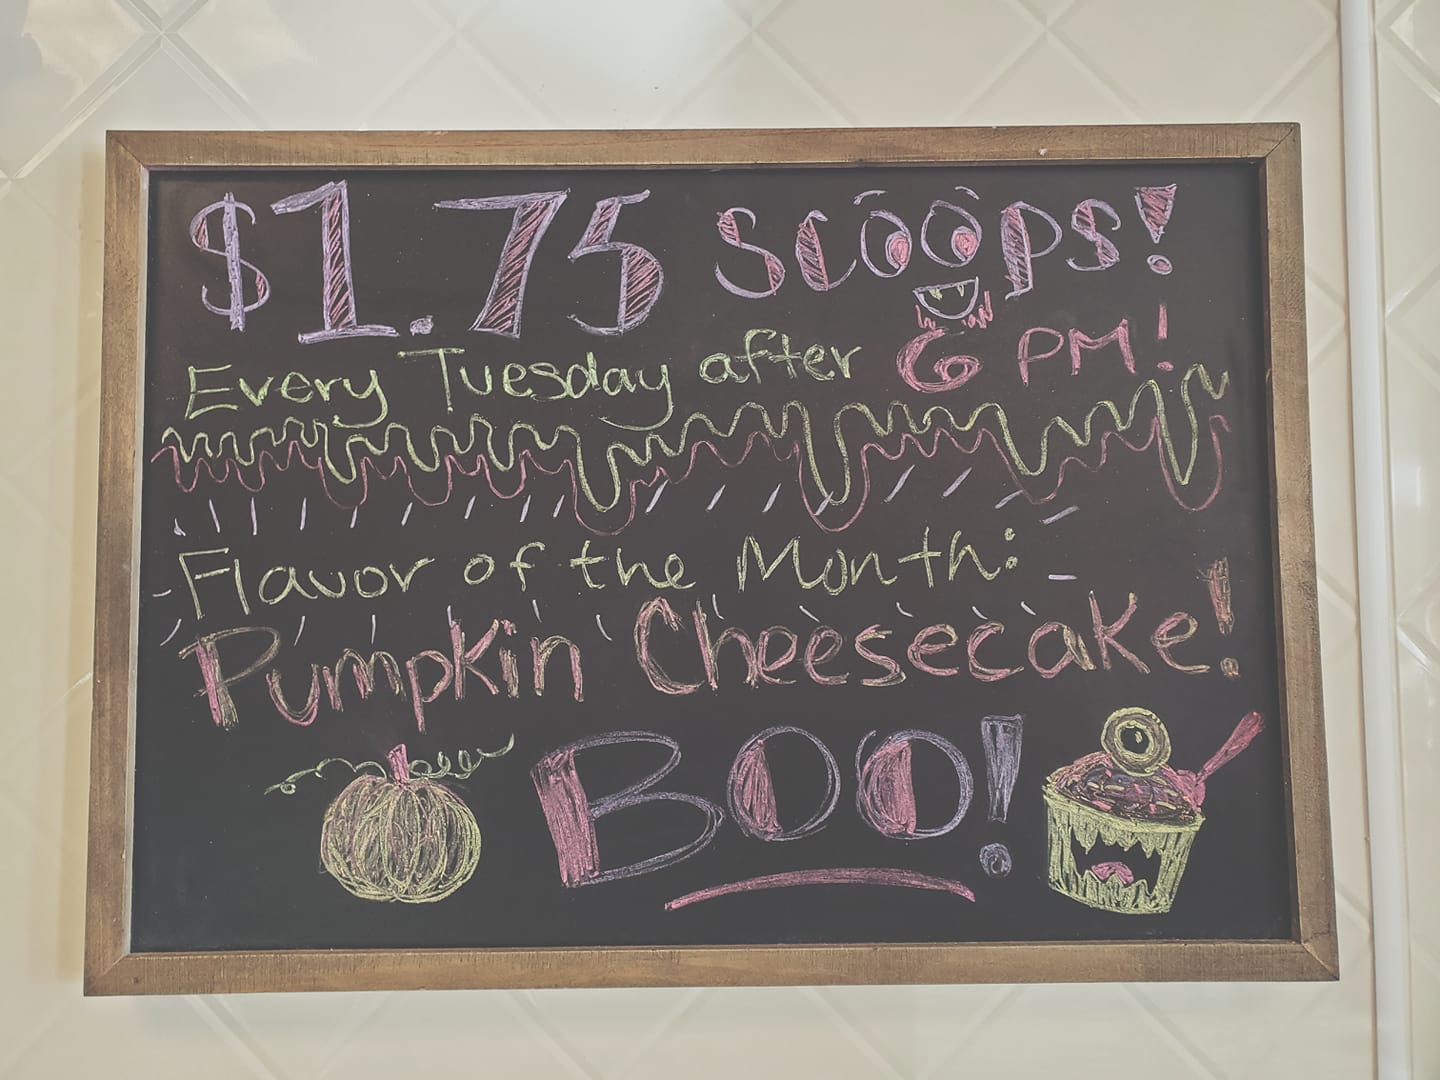 $1.75 SCOOPS!
Every Tuesday after 6 PM!
Flavor of the Month:
Pumpkin Cheesecake!
BOO!